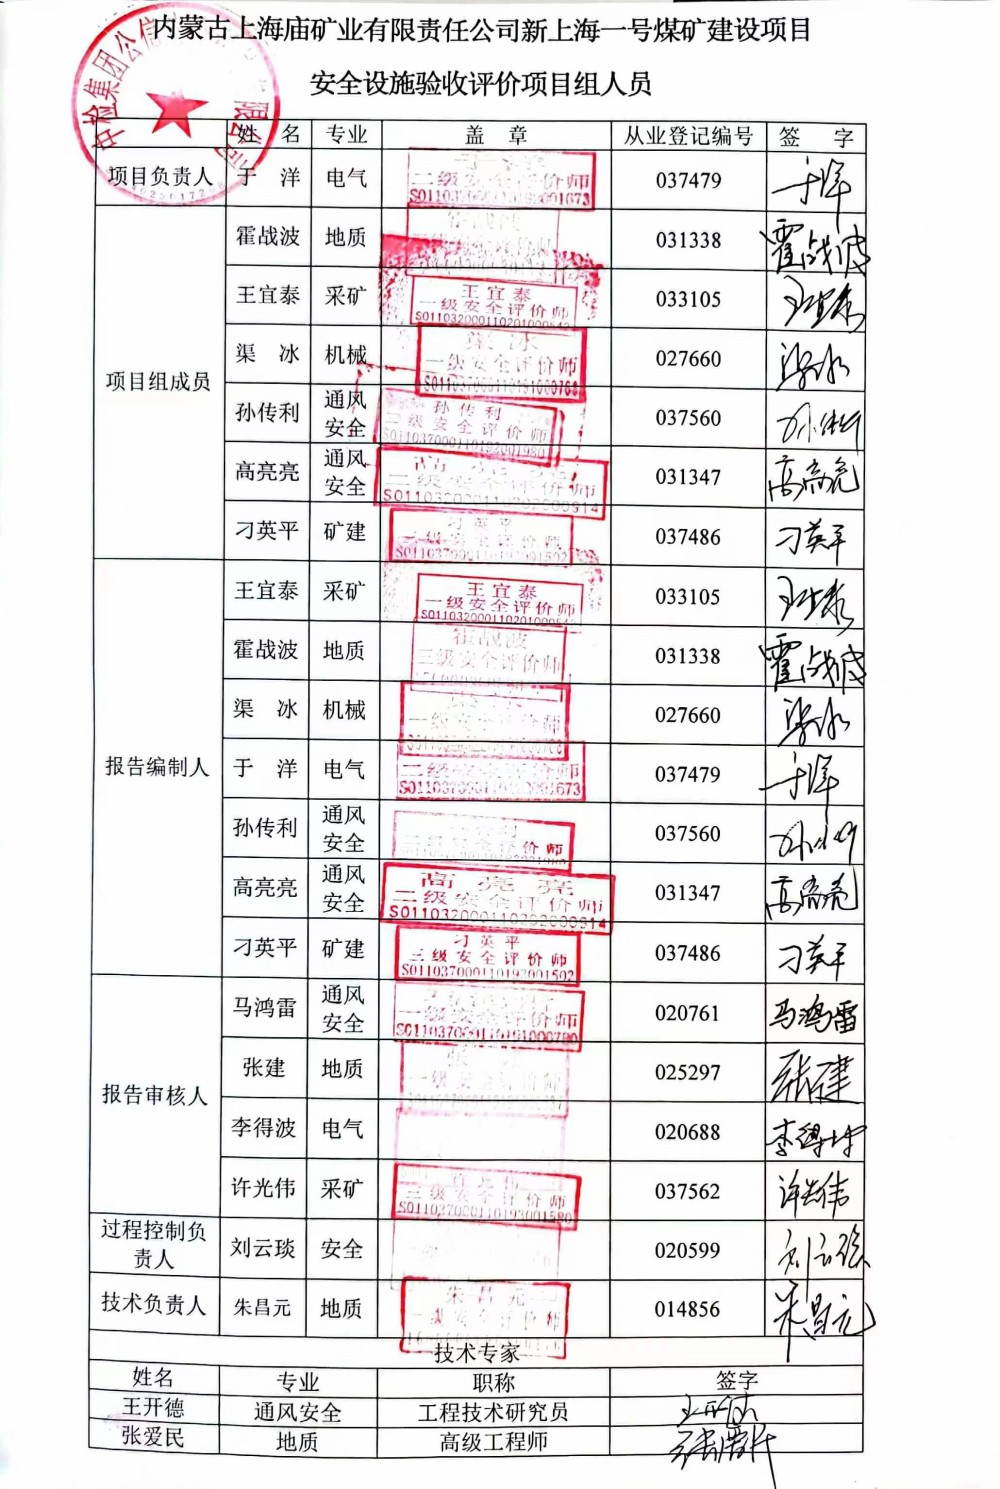 内蒙古上海庙矿业有限责任公司新上海一号煤矿建设项目
安全设施验收评价项目组人员
中检集团公信
限公司
姓 名 专业 盖 章 从业登记编号 签 字
项目负责人 于 洋 电气 二级安全评价师 037479 于洋
项目组成员
霍战波 地质 031338 霍战波
王宜泰 采矿 王宜泰 一级安全评价师 S011032000110201000542 033105 王宜泰
渠 冰 机械 渠冰 一级安全评价师 S011037000110191000768 027660 渠冰
孙传利 通风安全 孙传利 二级安全评价师 S011037000110192001980 037560 孙传利
高亮亮 通风安全 S011032000110202000914 031347 高亮亮
刁英平 矿建 刁英平 三级安全评价师 037486 刁英平
报告编制人
王宜泰 采矿 王宜泰 一级安全评价师 S011032000110201000542 033105 王宜泰
霍战波 地质 霍战波 三级安全评价师 031338 霍战波
渠 冰 机械 一级安全评价师 027660 渠冰
于 洋 电气 二级安全评价师 037479 于洋
孙传利 通风安全 价师 037560 孙传利
高亮亮 通风安全 高亮亮 二级安全评价师 S011032000110202000914 031347 高亮亮
刁英平 矿建 刁英平 三级安全评价师 S011037000110193001502 037486 刁英平
报告审核人
马鸿雷 通风安全 一级安全评价师 S011037000110191000780 020761 马鸿雷
张建 地质 025297 张建
李得波 电气 020688 李得波
许光伟 采矿 许光伟 三级安全评价师 S011037000110193001580 037562 许光伟
过程控制负责人 刘云琰 安全 020599 刘云琰
技术负责人 朱昌元 地质 朱昌元 014856 朱昌元
技术专家
姓名 专业 职称 签字
王开德 通风安全 工程技术研究员 王开德
张爱民 地质 高级工程师 张爱民